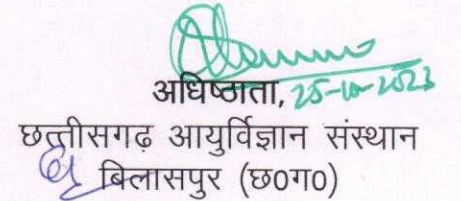 अधिष्ठाता, 25-10-2023
छत्तीसगढ़ आयुर्विज्ञान संस्थान
बिलासपुर (छ0ग0)